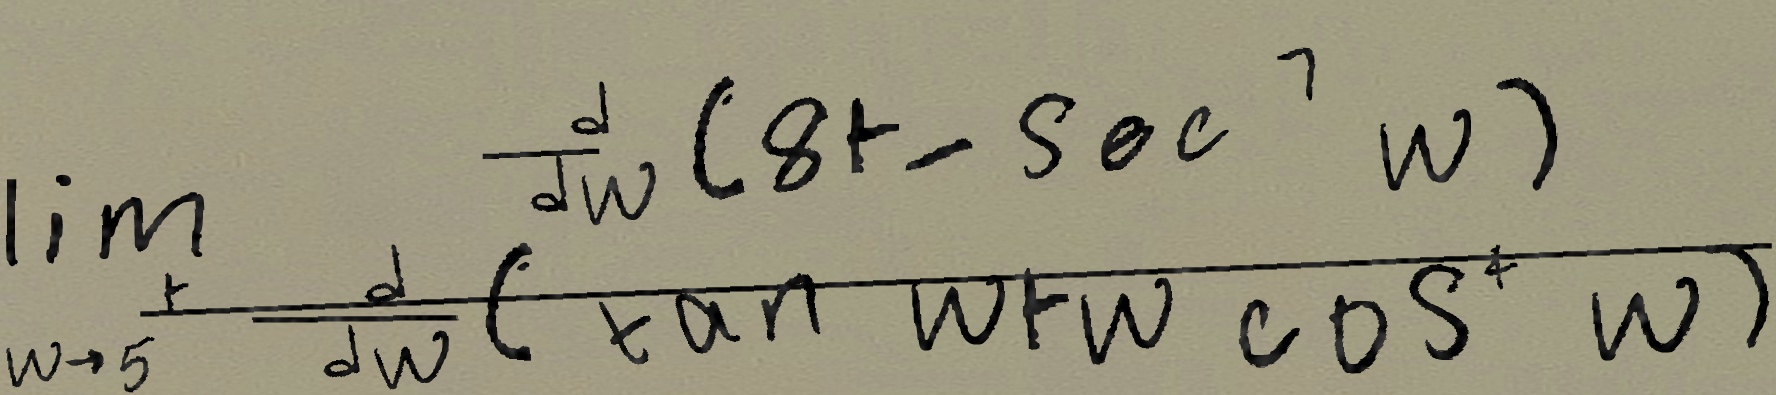 \lim_{w \to 5^{+}} \frac{\frac{d}{dw}(8 + -\sec^{7} w)}{\frac{d}{dw}(\tan w + w \cos^{4} w)}